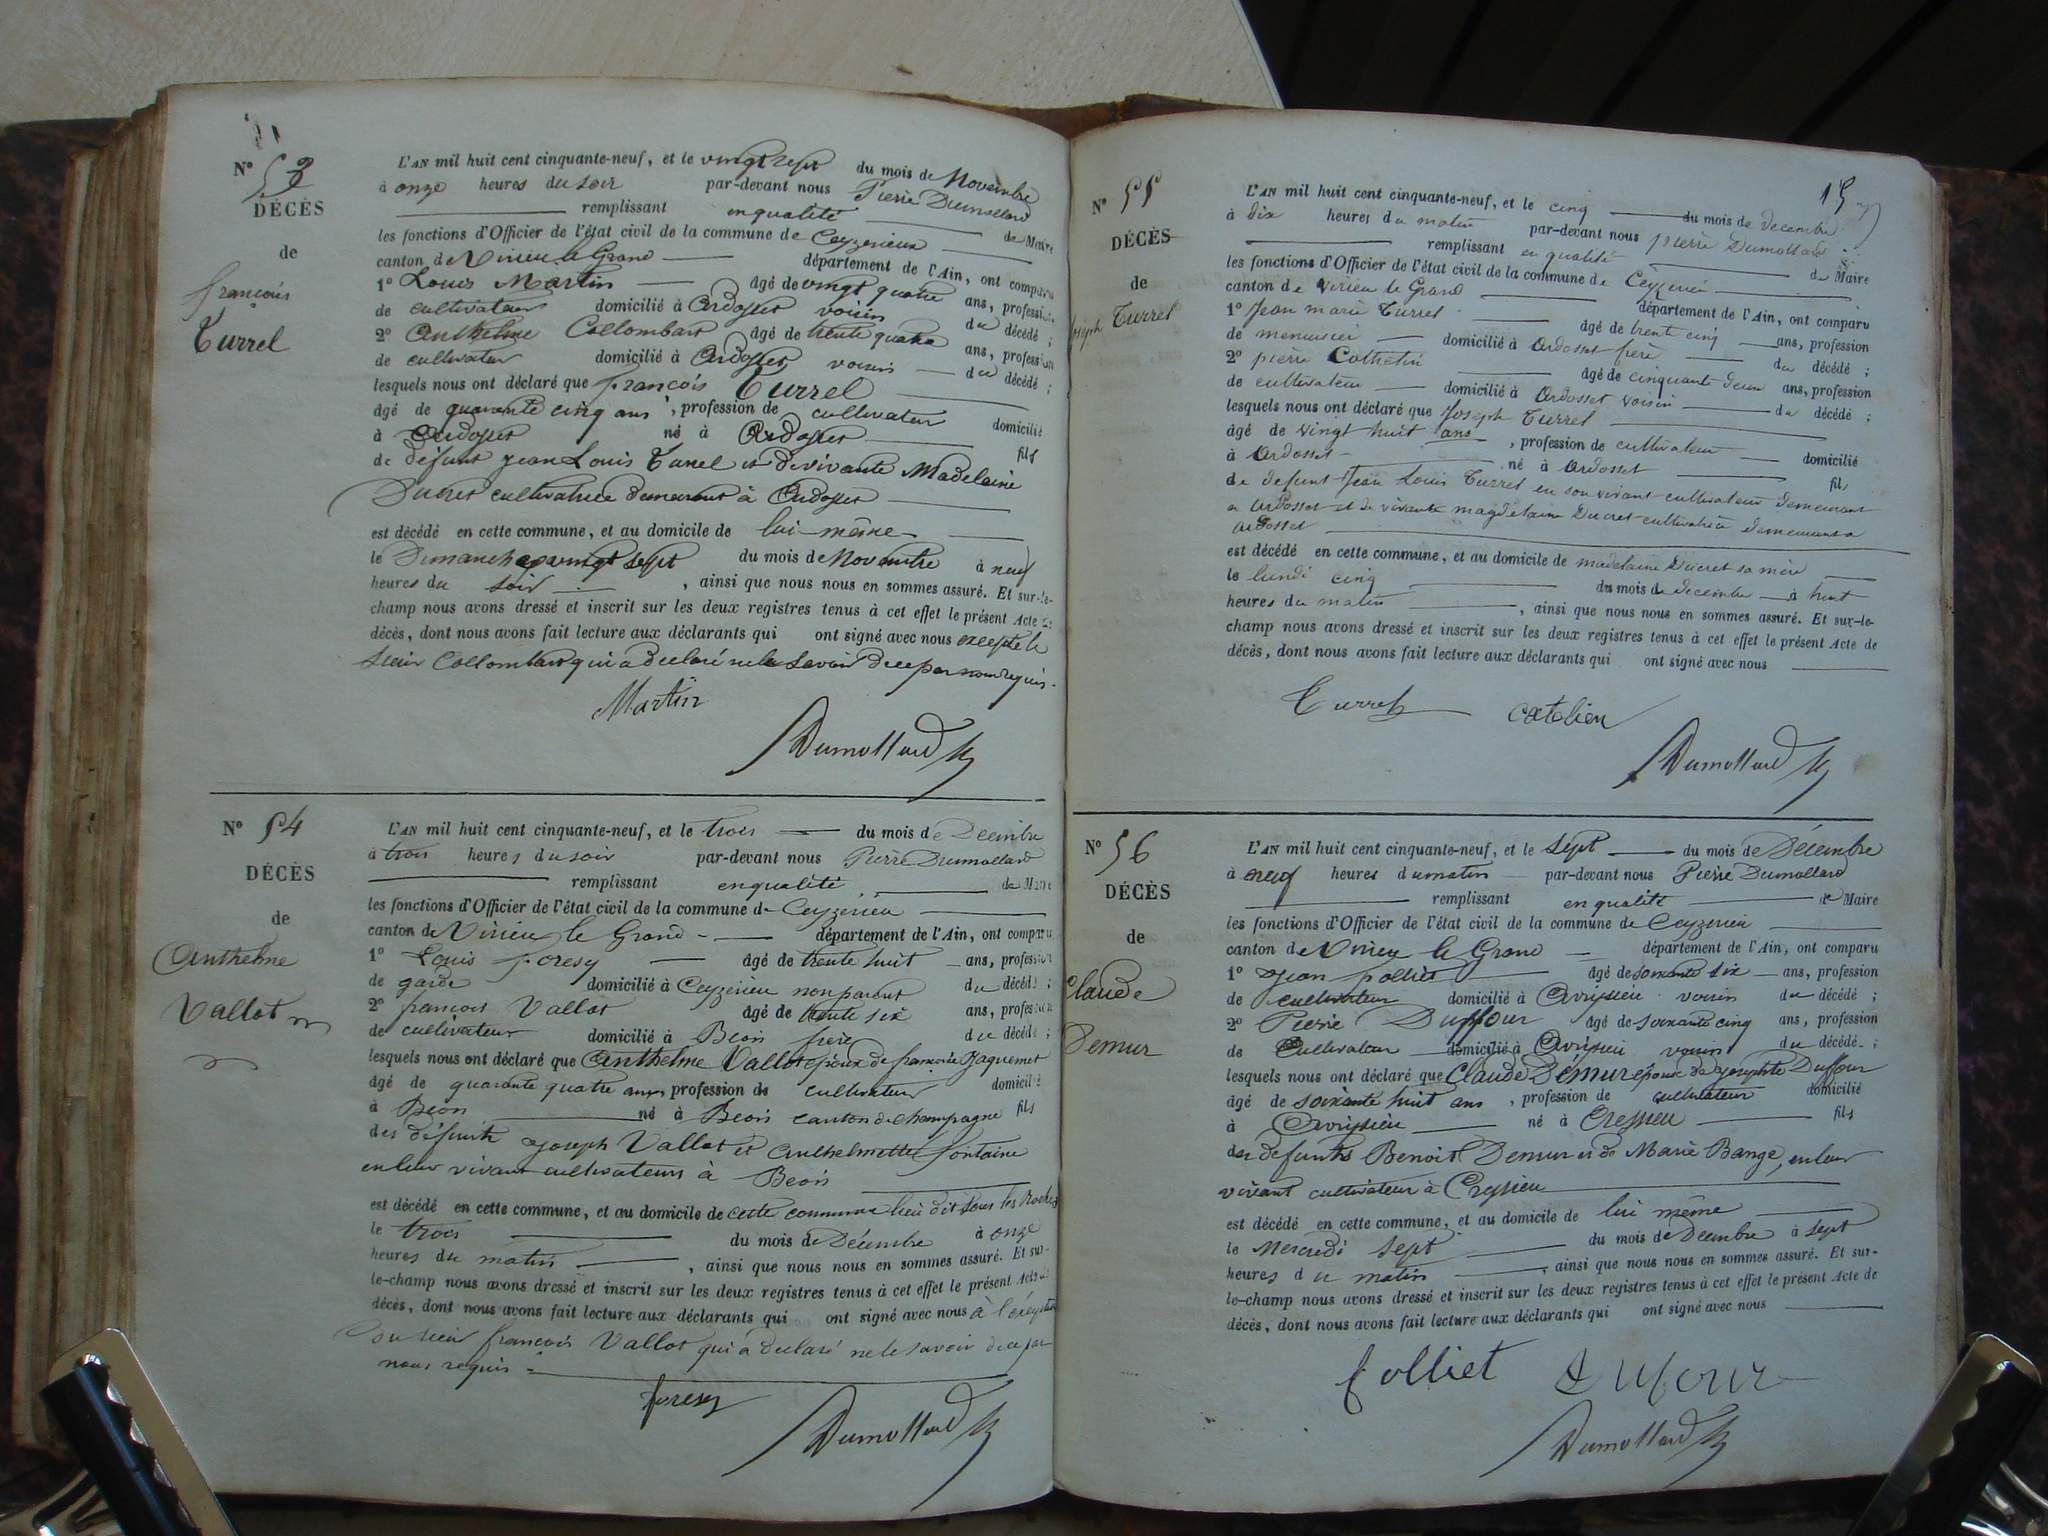 N° 53
DÉCÈS
de
françois
Turrel
L'AN mil huit cent cinquante-neuf, et le vingt sept du mois de Novembre
à onze heures du soir par-devant nous Pierre Dumollard
remplissant en qualité de Maire
les fonctions d'Officier de l'état civil de la commune de Ceyzerieux
canton de Virieu le Grand département de l'Ain, ont comparu
1° Louis Martin âgé de vingt quatre ans, profession
de cultivateur domicilié à Ardosset voisin du décédé ;
2° Anthelme Collombart âgé de trente quatre ans, profession
de cultivateur domicilié à Ardosset voisin du décédé ;
lesquels nous ont déclaré que françois Turrel
âgé de quarante cinq ans, profession de cultivateur domicilié
à Ardosset né à Ardosset fils
de défunt Jean Louis Turrel et de vivante Madelaine
Ducret cultivatrice demeurant à Ardosset
est décédé en cette commune, et au domicile de lui-même
le Dimanche vingt sept du mois de Novembre à neuf
heures du soir, ainsi que nous nous en sommes assuré. Et sur-le-
champ nous avons dressé et inscrit sur les deux registres tenus à cet effet le présent Acte de
décès, dont nous avons fait lecture aux déclarants qui ont signé avec nous excepté le
Sieur Collombart qui a déclaré ne le savoir de ce par nous requis.
Martin
Dumollard
N° 54
DÉCÈS
de
Anthelme
Vallot
L'AN mil huit cent cinquante-neuf, et le trois du mois de Décembre
à trois heures du soir par-devant nous Pierre Dumollard
remplissant en qualité de Maire
les fonctions d'Officier de l'état civil de la commune de Ceyzerieu
canton de Virieu le Grand département de l'Ain, ont comparu
1° Louis foresy âgé de trente huit ans, profession
de garde domicilié à Ceyzerieu non parent du décédé ;
2° françois Vallot âgé de trente six ans, profession
de cultivateur domicilié à Béon frère du décédé ;
lesquels nous ont déclaré que Anthelme Vallot époux de françoise Jaquemet
âgé de quarante quatre ans, profession de cultivateur domicilié
à Béon né à Béon canton de Champagne fils
des défunts Joseph Vallot et Anthelmette fontaine
en leur vivant cultivateurs à Béon
est décédé en cette commune, et au domicile de cette commune lieu dit Sous les Roches
le trois du mois de Décembre à onze
heures du matin, ainsi que nous nous en sommes assuré. Et sur-
le-champ nous avons dressé et inscrit sur les deux registres tenus à cet effet le présent Acte de
décès, dont nous avons fait lecture aux déclarants qui ont signé avec nous à l'exception
du sieur françois Vallot qui a déclaré ne le savoir de ce par
nous requis
foresy
Dumollard
N° 55
DÉCÈS
de
Joseph Turrel
L'AN mil huit cent cinquante-neuf, et le cinq du mois de Décembre
à dix heures du matin par-devant nous pierre Dumollard
remplissant en qualité de Maire
les fonctions d'Officier de l'état civil de la commune de Ceyzerieu
canton de Virieu le Grand département de l'Ain, ont comparu
1° Jean marie Turrel âgé de trente cinq ans, profession
de menuisier domicilié à Ardosset frère du décédé ;
2° pierre Cathelin âgé de cinquante deux ans, profession
de cultivateur domicilié à Ardosset voisin du décédé ;
lesquels nous ont déclaré que Joseph Turrel
âgé de vingt huit ans, profession de cultivateur domicilié
à Ardosset né à Ardosset fils
de défunt Jean Louis Turrel en son vivant cultivateur demeurant
à Ardosset et de vivante magdelaine Ducret cultivatrice demeurant à
Ardosset
est décédé en cette commune, et au domicile de madelaine Ducret sa mère
le lundi cinq du mois de Décembre à huit
heures du matin, ainsi que nous nous en sommes assuré. Et sur-le-
champ nous avons dressé et inscrit sur les deux registres tenus à cet effet le présent Acte de
décès, dont nous avons fait lecture aux déclarants qui ont signé avec nous
Turrel catelien
Dumollard
N° 56
DÉCÈS
de
Claude
Demur
L'AN mil huit cent cinquante-neuf, et le Sept du mois de Décembre
à neuf heures du matin par-devant nous Pierre Dumollard
remplissant en qualité de Maire
les fonctions d'Officier de l'état civil de la commune de Ceyzerieu
canton de Virieu le Grand département de l'Ain, ont comparu
1° Jean folliet âgé de soixante six ans, profession
de cultivateur domicilié à Avrissieu voisin du décédé ;
2° Pierre Duffour âgé de soixante cinq ans, profession
de Cultivateur domicilié à Avrissieu voisin du décédé ;
lesquels nous ont déclaré que Claude Démur époux de Josephte Duffour
âgé de soixante huit ans, profession de cultivateur domicilié
à Avrissieu né à Cressieu fils
des défunts Benoit Demur et de Marie Bange, en leur
vivant cultivateur à Cressieu
est décédé en cette commune, et au domicile de lui même
le Mercredi Sept du mois de Décembre à sept
heures du matin, ainsi que nous nous en sommes assuré. Et sur-
le-champ nous avons dressé et inscrit sur les deux registres tenus à cet effet le présent Acte de
décès, dont nous avons fait lecture aux déclarants qui ont signé avec nous
folliet Dufour
Dumollard